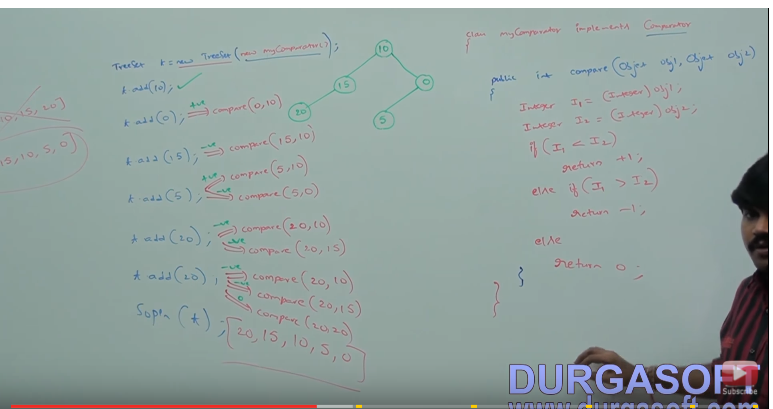 TreeSet t = new TreeSet(new myComparator());
t.add(10);
t.add(0); +ve compare(0,10)
t.add(15); -ve compare(15,10)
+ve compare(5,10)
t.add(5); -ve compare(5,0)
t.add(20); -ve compare(20,10)
-ve compare(20,15)
t.add(20); -ve compare(20,10)
-ve compare(20,15)
0 compare(20,20)
Sopln(t); [20,15,10,5,0]
10
15
0
20
5
class myComparator implements Comparator
{
public int compare(Object obj1, Object obj2)
{
Integer I1 = (Integer)obj1;
Integer I2 = (Integer)obj2;
if(I1 < I2)
return +1;
else if(I1 > I2)
return -1;
else
return 0;
}
}
15,20]
15,10,5,0]
Subscribe
DURGASOFT
www.durgasoft.com